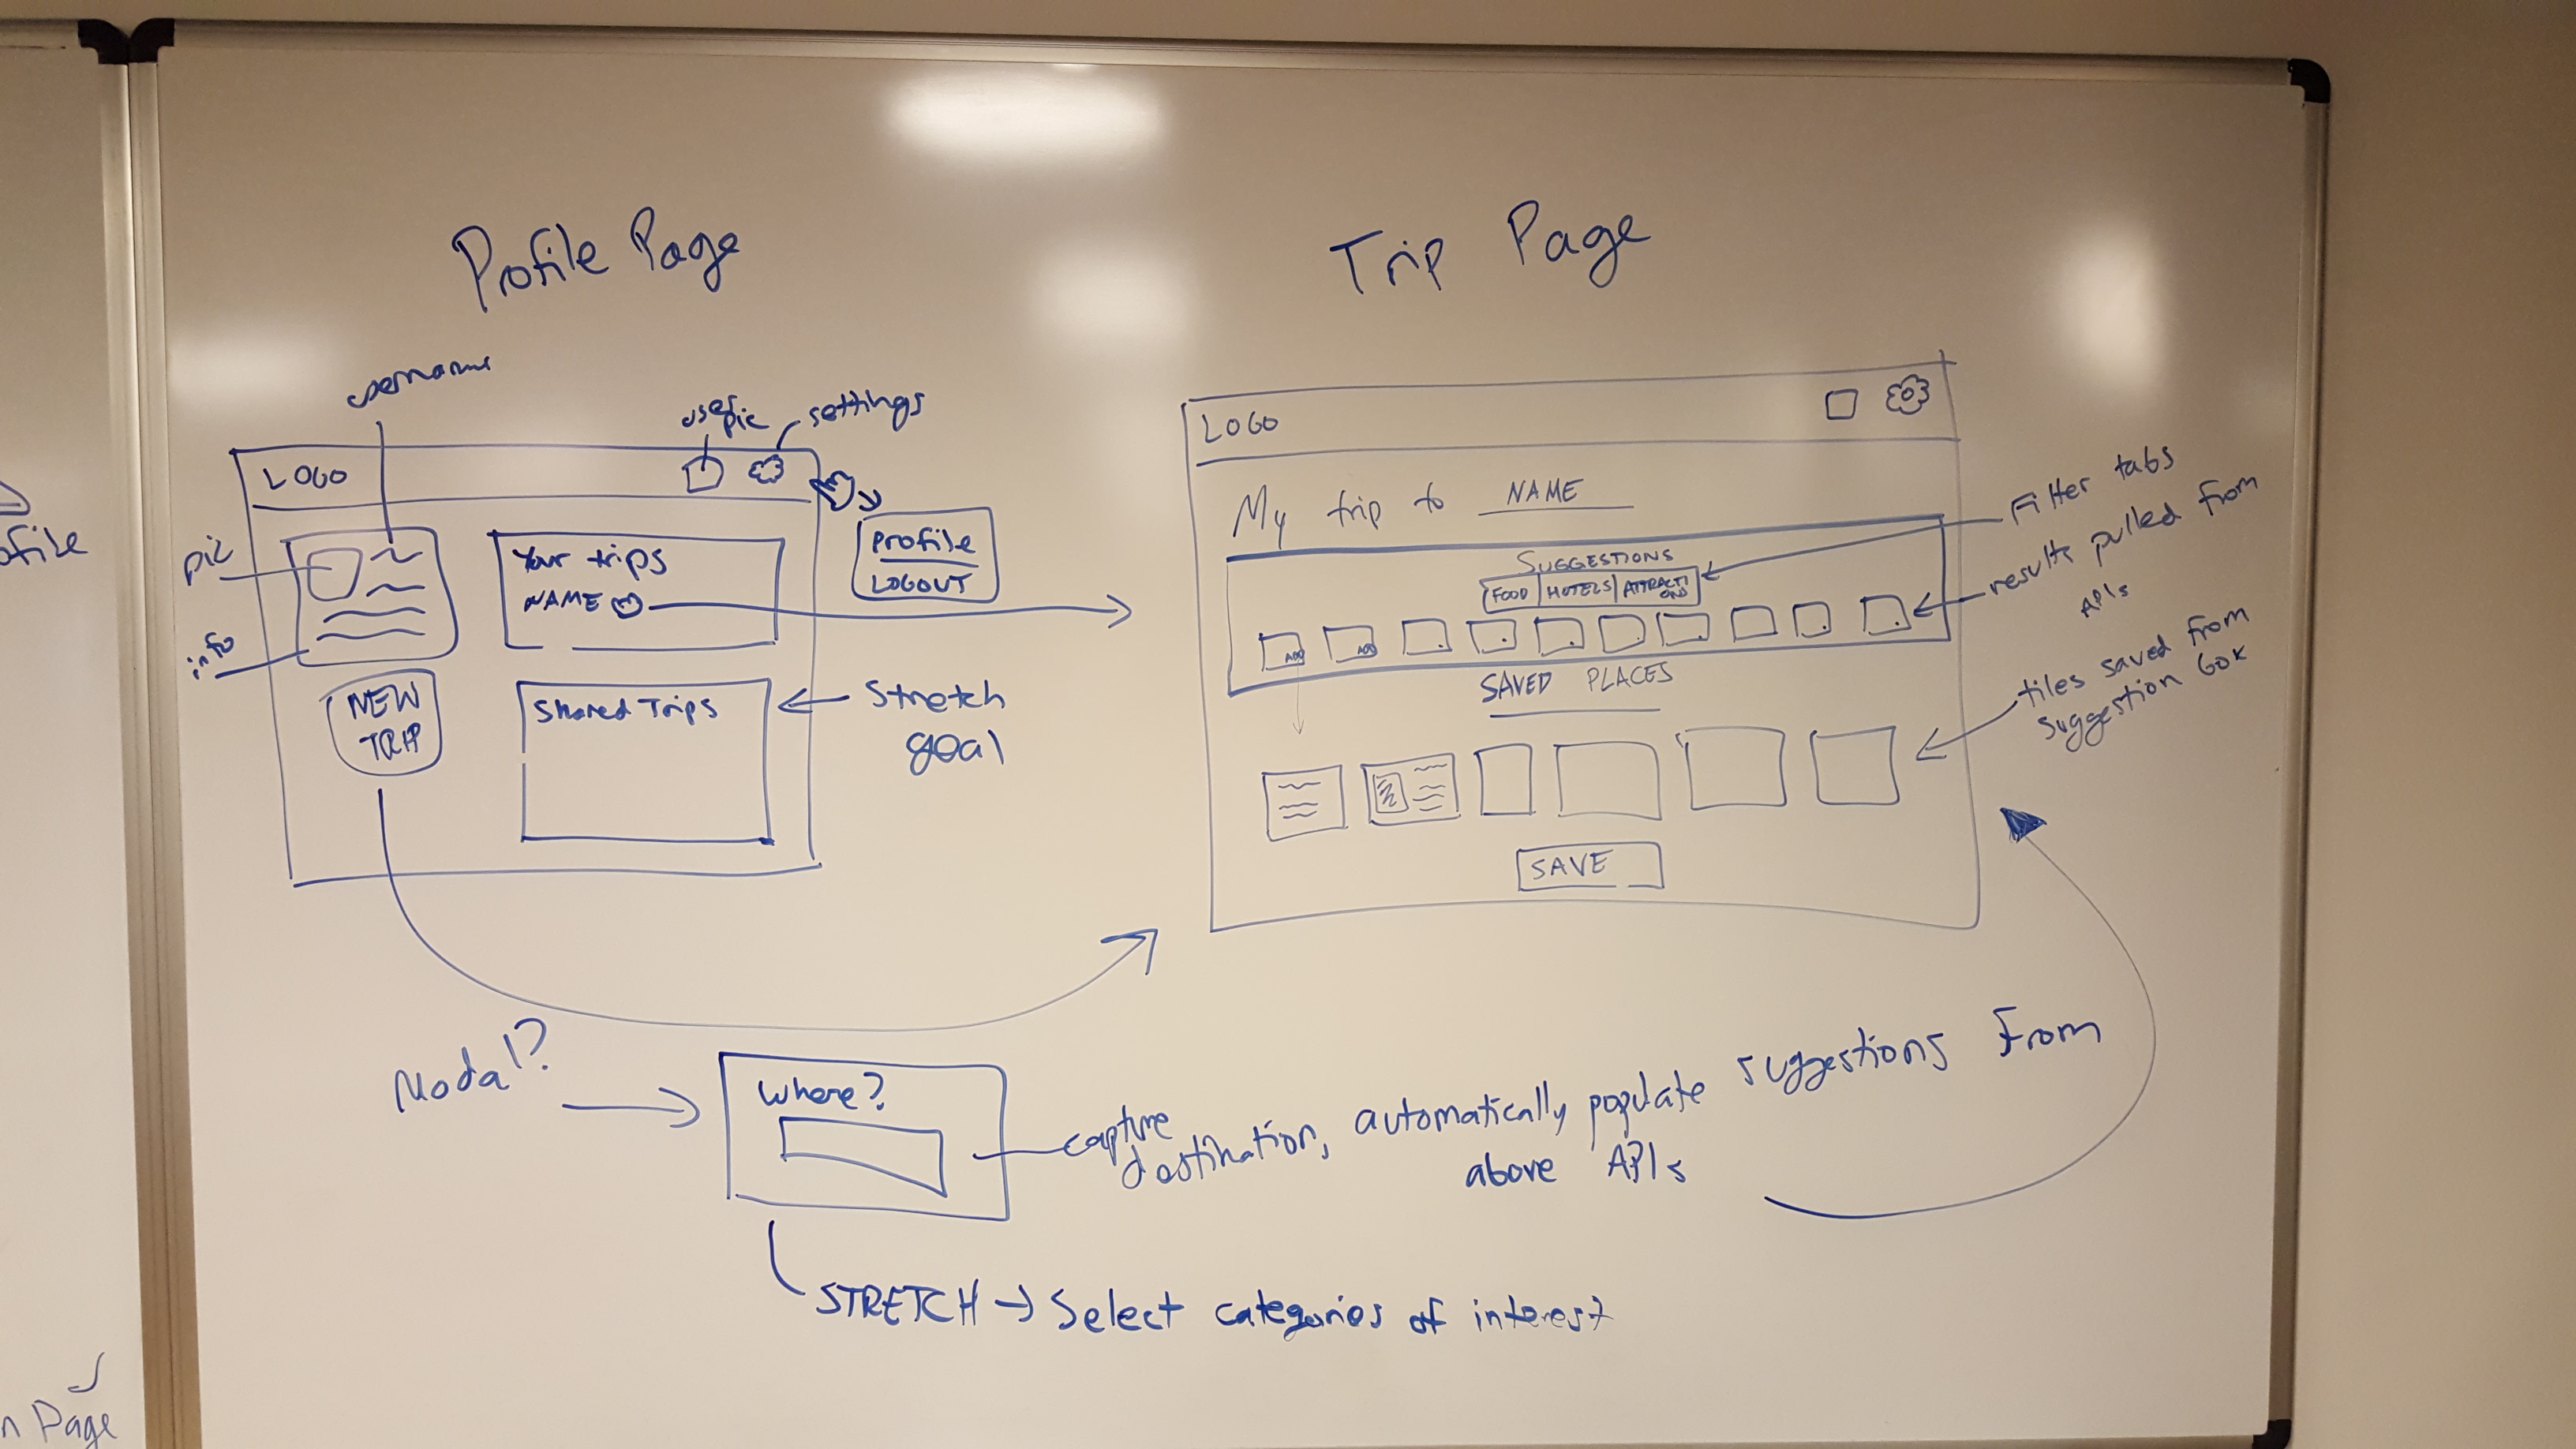 Profile Page
username
user
pic
settings
LOGO
pic
info
Your trips
NAME
profile
LOGOUT
NEW
TRIP
Shared Trips
Stretch
goal
Trip Page
LOGO
My trip to NAME
SUGGESTIONS
FOOD HOTELS ATTRACTI
ONS
ADD ADD
SAVED PLACES
SAVE
Filter tabs
results pulled from
APIs
tiles saved from
suggestion box
Modal?
Where?
capture
destination, automatically populate suggestions from
above APIs
STRETCH → Select categories of interest
ofile
n Page